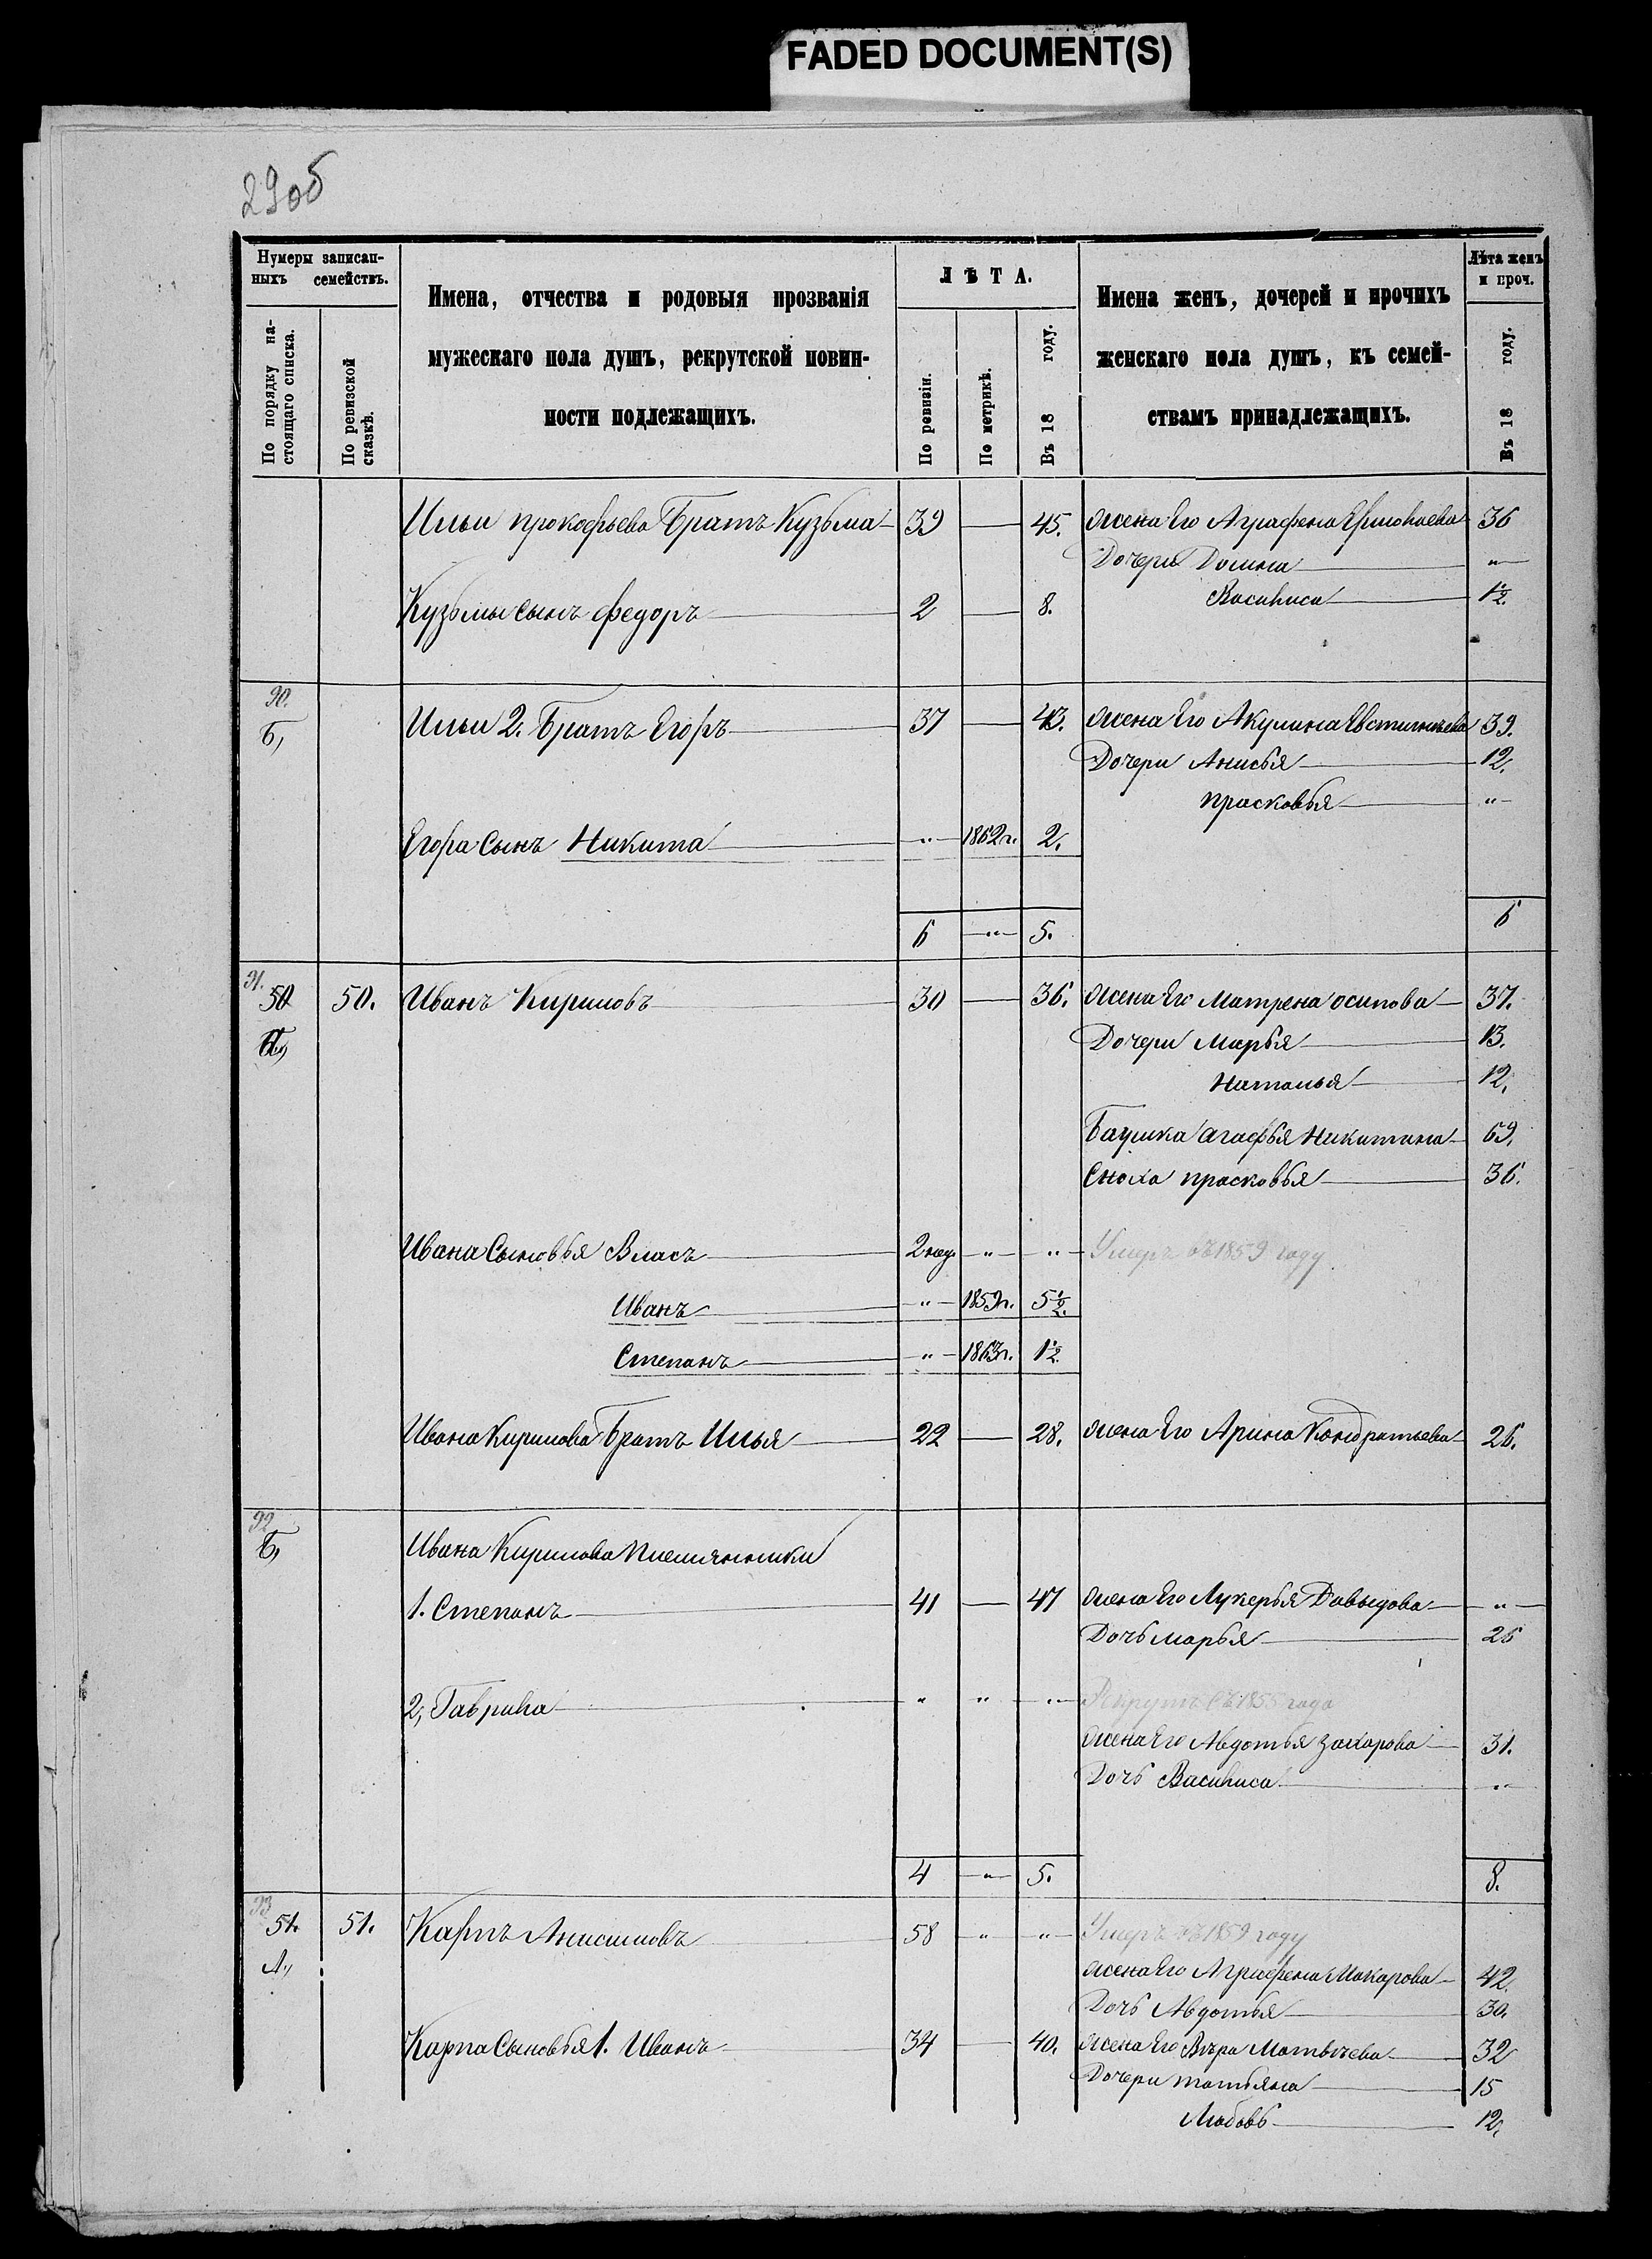 FADED DOCUMENT(S)
29об
Нумеры записан-
ныхъ семействъ.
По порядку на-
стоящаго списка.
По ревизской
сказкѣ.
Имена, отчества и родовыя прозванія
мужескаго пола душъ, рекрутской повин-
ности подлежащихъ.
ЛѢТА.
По ревизіи.
По метрикѣ.
Въ 18 году.
Имена женъ, дочерей и прочихъ
женскаго пола душъ, къ семей-
ствамъ принадлежащихъ.
Лѣта женъ
и проч.
Въ 18 году.
Ильи Прокофьева Братъ Кузьма 39 — 45. Жена Его Аграфена Ермолаева 36
Дочери Домна "
Василиса 1½.
Кузьмы Сынъ Федоръ 2 — 8.
90.
Б, Ильи 2. Братъ Егоръ 37 — 43. Жена Его Акулина Евстигнѣева 39.
Дочери Анисья 12.
Прасковья "
Егора Сынъ Никита " 1862 г. 2.
6 " 5. 6
91.
50 50. Иванъ Кириловъ 30 — 36. Жена Его Матрена Осипова 37.
Дочери Марья 13.
Наталья 12.
Агафья Никитина 69.
Сноха Прасковья 36.
Ивана Сыновья Власъ 2 нед. " " Умеръ въ 1859 году
Иванъ " 1859 г. 5½.
Степанъ " 1863 г. 1½.
Ивана Кирилова Братъ Илья 22 — 28. Жена Его Арина Кондратьева 26.
92
Б, Ивана Кирилова Племянники
1. Степанъ 41 — 47 Жена Его Лукерья Давыдова "
Дочь Марья 26
2, Гаврила " " " Рекрутъ съ 1855 года
Жена Его Авдотья Захарова 31.
Дочь Василиса "
4 " 5. 8.
93
51. 51. Карпъ Анисимовъ 58 " " Умеръ въ 1859 году
А., Жена Его Аграфена Макарова 42.
Дочь Авдотья 30.
Карпа Сыновья 1. Иванъ 34 — 40. Жена Его Вѣра Матвѣева 32
Дочери Татьяна 15
Любовь 12.